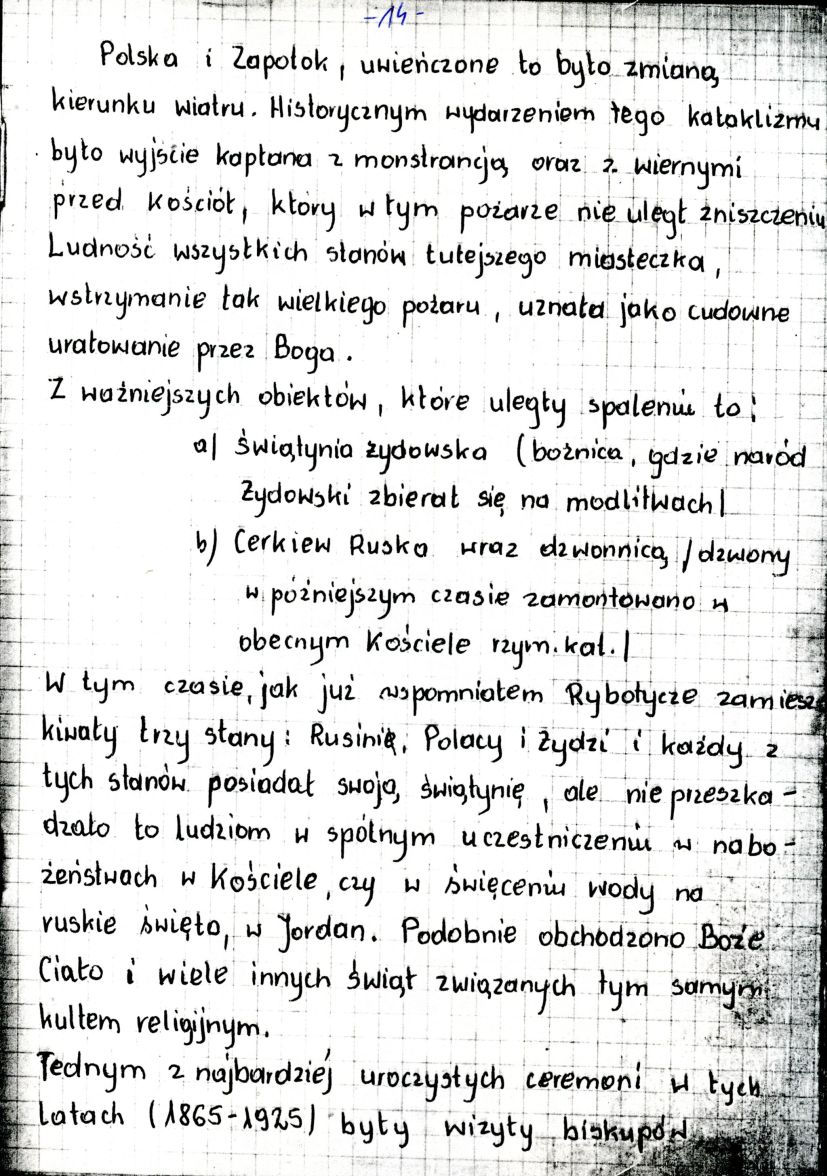 -14-
Polska i Zapotok, uwieńczone to było zmianą
kierunku wiatru. Historycznym wydarzeniem tego kataklizmu
było wyjście kapłana z monstrancją oraz z wiernymi
przed Kościół, który w tym pożarze nie uległ zniszczeniu
Ludność wszystkich stanów tutejszego miasteczka,
wstrzymanie tak wielkiego pożaru, uznała jako cudowne
uratowanie przez Boga.
Z ważniejszych obiektów, które uległy spaleniu to:
a| świątynia żydowska (bożnica, gdzie naród
Żydowski zbierał się na modlitwach|
b) Cerkiew Ruska wraz dzwonnicą /dzwony
w późniejszym czasie zamontowano w
obecnym Kościele rzym.kat.|
W tym czasie, jak już wspomniałem Rybotycze zamiesz
kiwały trzy stany: Rusinię, Polacy i Żydzi i każdy z
tych stanów posiadał swoją świątynię, ale nie przeszka-
dzało to ludziom w spólnym uczestniczeniu w nabo-
żeństwach w Kościele, czy w święceniu wody na
ruskie święto, w Jordan. Podobnie obchodzono Boże
Ciało i wiele innych świąt związanych tym samym
kultem religijnym.
Jednym z najbardziej uroczystych ceremoni w tych
latach (1865-1925) były wizyty biskupów